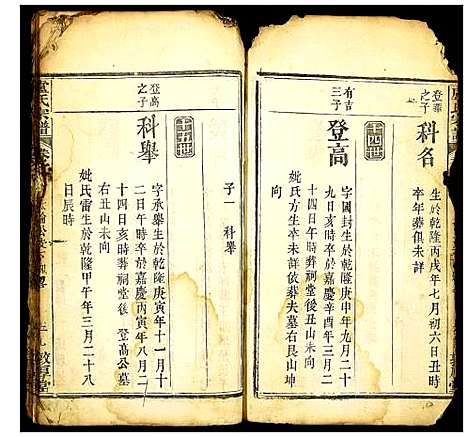 登華
之子
科名
生於乾隆丙戌年七月初六日丑時
卒年葬俱未詳
十四世
有吉
三子
登高
字國封生於乾隆庚申年九月二十
九日亥時卒於嘉慶辛酉年三月二
十四日午時葬祠堂後丑山未向
妣氏方生卒未詳依葬夫墓右艮山坤
向
子一 科舉
十五世
登高
之子
科舉
字承舉生於乾隆庚寅年十一月十
二日午時卒於嘉慶丙寅年八月二
十四日亥時葬祠堂後 登高公墓
右丑山未向
妣氏雷生於乾隆甲午年三月二十八
日辰時
盧氏宗譜
敦厚堂